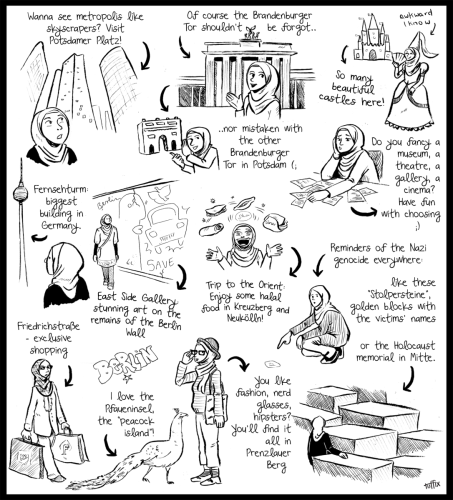 Wanna see metropolis like
skyscrapers? Visit
Potsdamer Platz!
Of course the Brandenburger
Tor shouldn't be forgot..
..nor mistaken with
the other
Brandenburger
Tor in Potsdam (;
awkward
I know
So many
beautiful
castles here!
Do you fancy a
museum, a
theatre, a
gallery, a
cinema?
Have fun
with choosing
;)
Fernsehturm:
biggest
building in
Germany
Berlin
SAVE
East Side Gallery:
stunning art on the
remains of the Berlin
Wall
Trip to the Orient:
Enjoy some halal
food in Kreuzberg and
Neukölln!
Reminders of the Nazi
genocide everywhere:
like these
'Stolpersteine',
golden blocks with
the victims' names
or the Holocaust
memorial in Mitte.
Friedrichstraße
- exclusive
shopping
BERLIN
I love the
Pfaueninsel,
the 'peacock
island'!
You like
fashion, nerd
glasses,
hipsters?
You'll find it
all in
Prenzlauer
Berg
tuffix